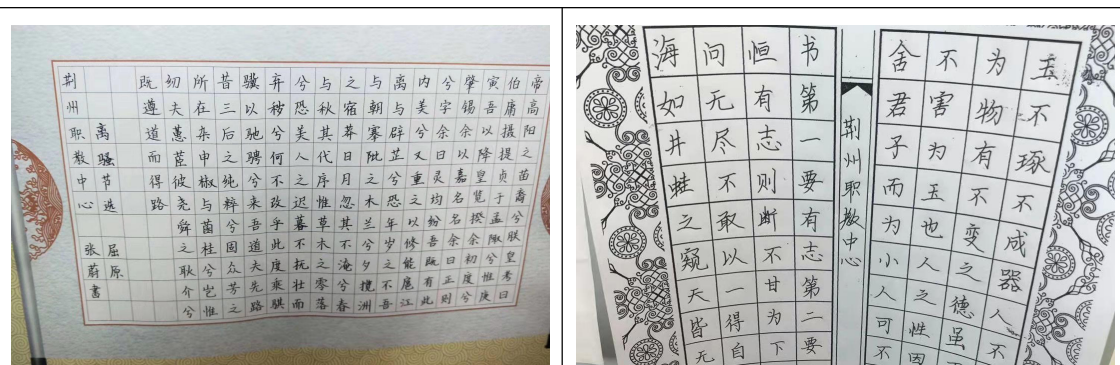 帝高阳之苗裔兮朕皇考曰
伯庸摄提贞于孟陬兮惟庚
寅吾以降皇览揆余初度兮
肇锡余以嘉名名余曰正则
兮字余曰灵均纷吾既有此
内美兮又重之以修能扈江
离与辟芷兮恐年岁之不吾
与朝搴阰之木兰兮夕揽洲
之宿莽日月忽其不淹兮春
与秋其代序惟草木之零落
兮恐美人之迟暮不抚壮而
弃秽兮何不改乎此度乘骐
骥以驰骋兮来吾道夫先路
昔三后之纯粹兮固众芳之
所在杂申椒与菌桂兮岂惟
纫夫蕙茝彼尧舜之耿介兮
既遵道而得路
离骚节选 屈原
荆州职教中心 张蔚书
玉不琢不成器人不
为物有不变之德虽
不害为玉也人之性因
舍君子而为小人可不
荆州职教中心
书第一要有志第二要
恒有志则断不甘为下
问无尽不敢以一得自
海如井蛙之窥天皆无